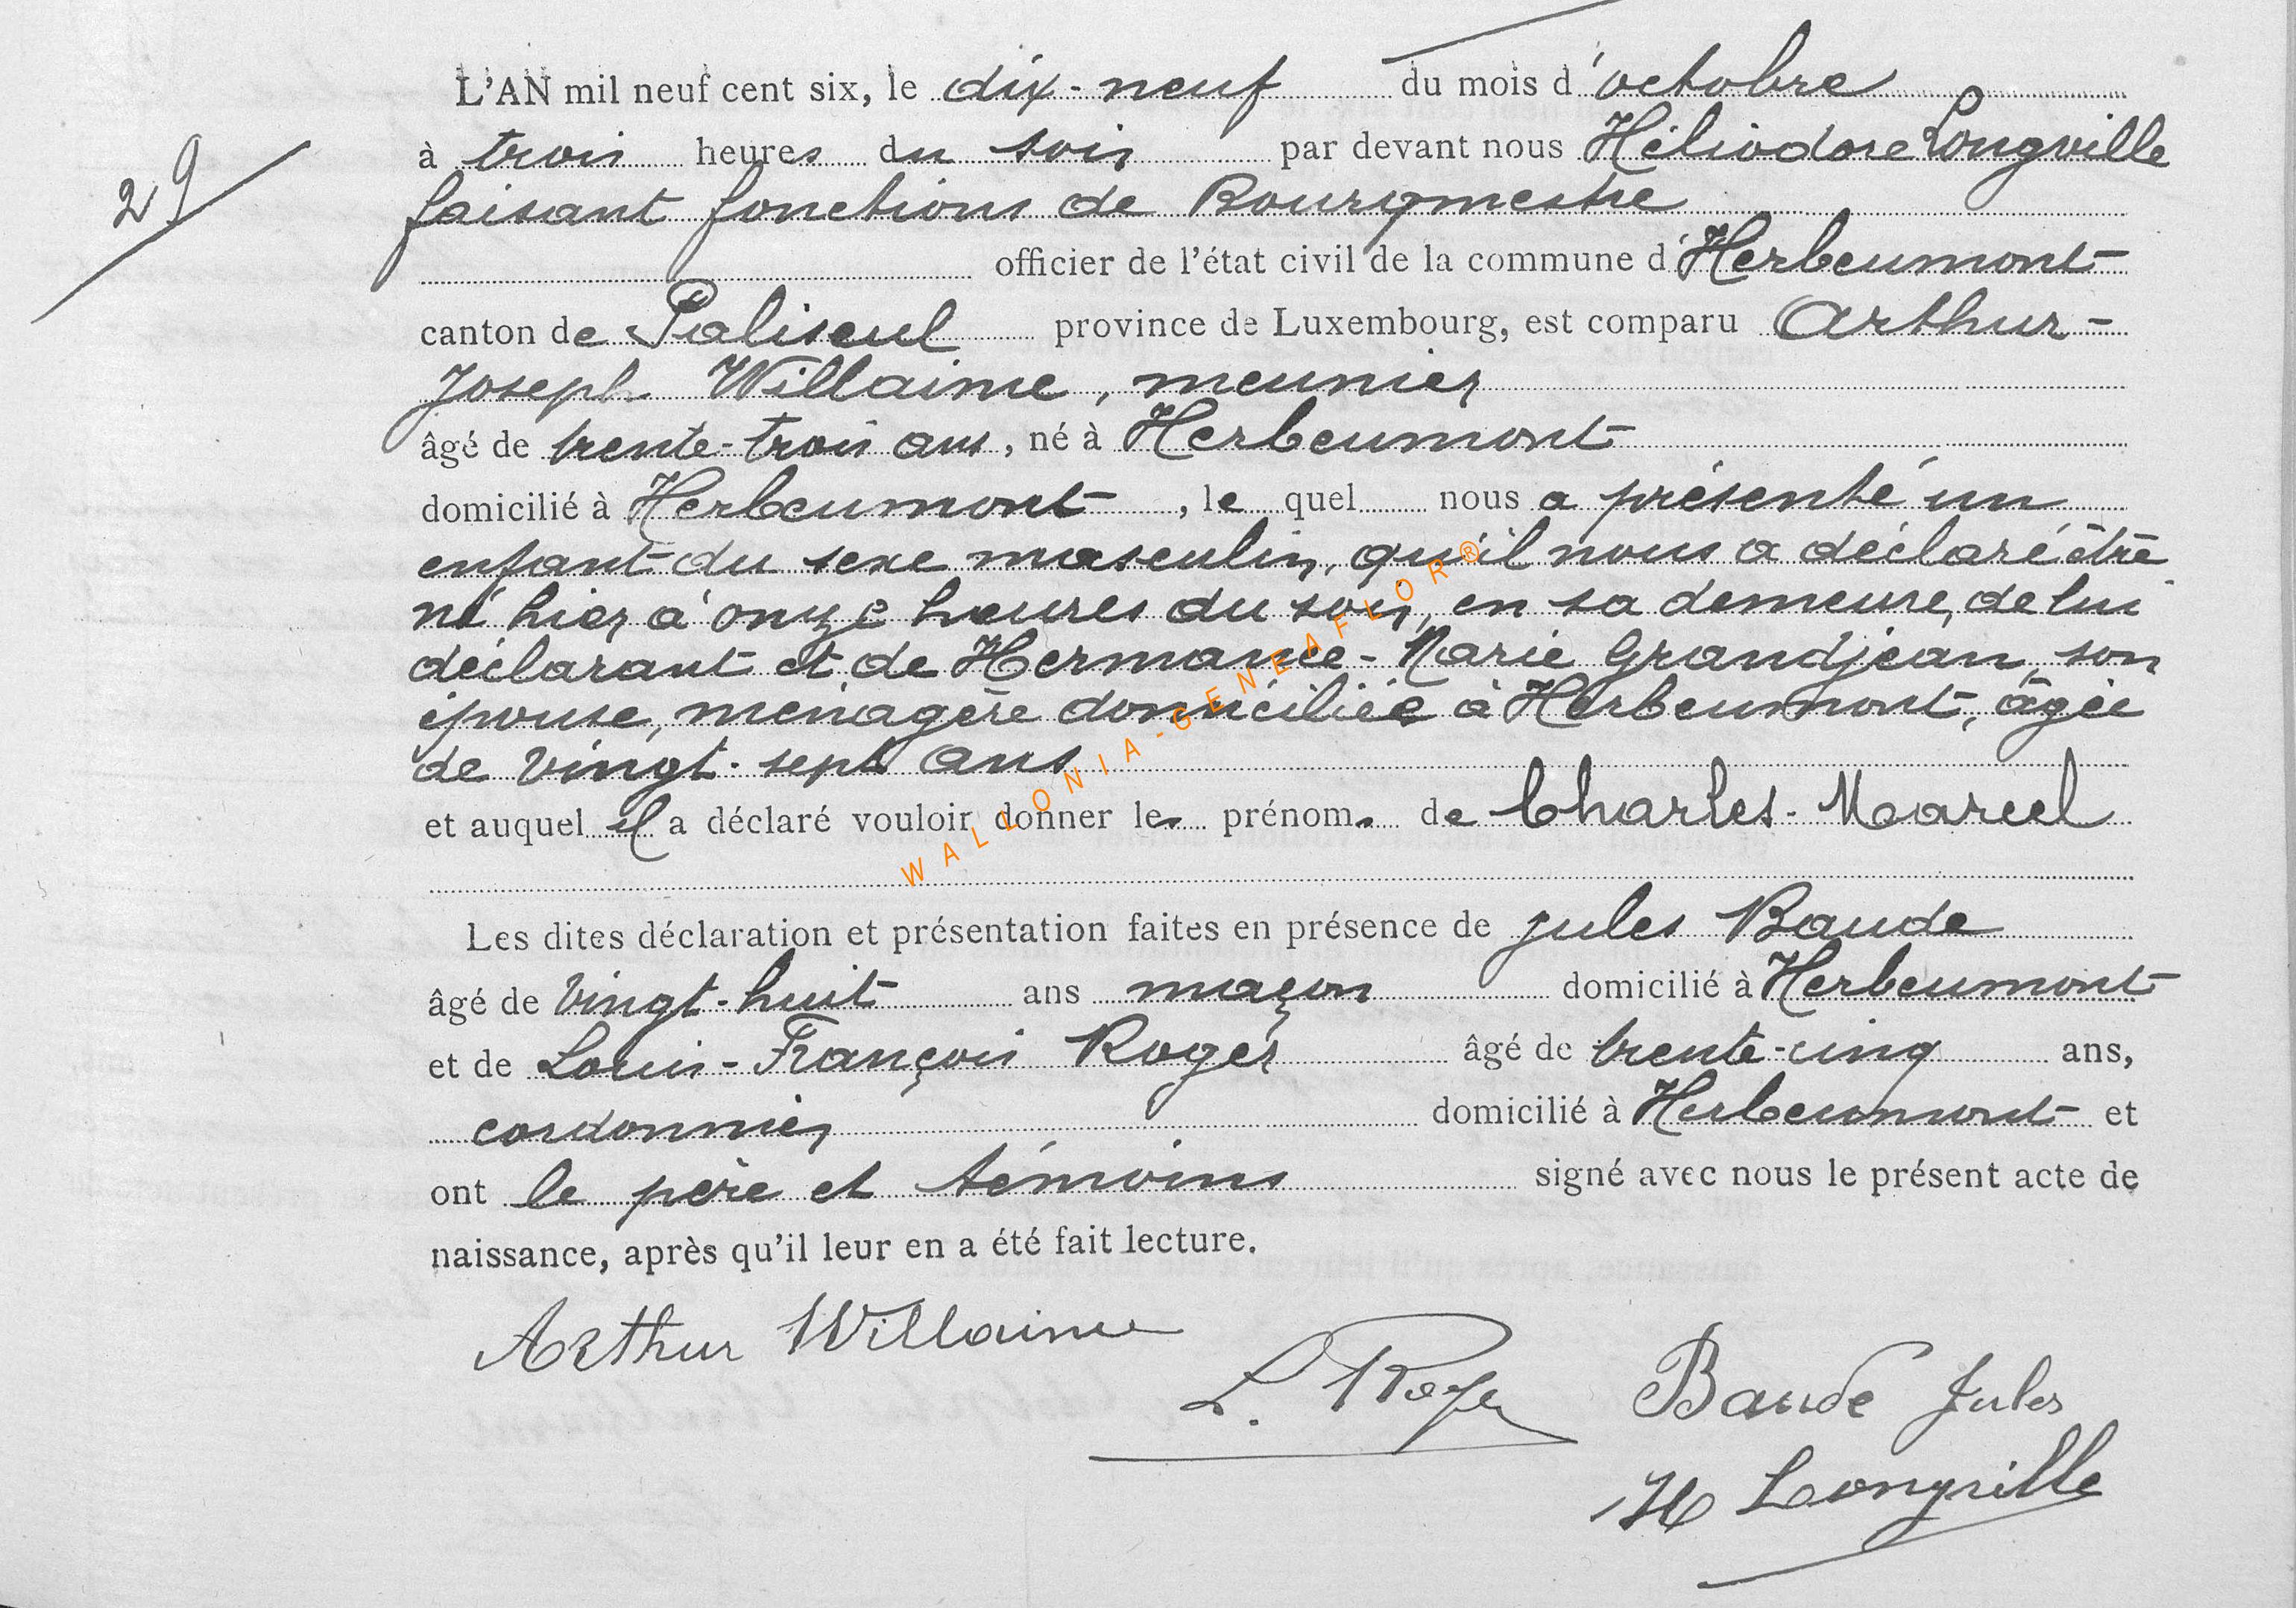 L'AN mil neuf cent six, le dix-neuf du mois d'octobre
à trois heures du soir par devant nous Héliodore Longville
29
faisant fonctions de Bourgmestre
officier de l'état civil de la commune d'Herbeumont
canton de Paliseul province de Luxembourg, est comparu Arthur-
Joseph Willaime, meunier
âgé de trente-trois ans, né à Herbeumont
domicilié à Herbeumont, le quel nous a présenté un
enfant du sexe masculin, qu'il nous a déclaré être
né hier à onze heures du soir, en sa demeure, de lui
déclarant et de Hermance-Marie Grandjean, son
épouse, ménagère domiciliée à Herbeumont, âgée
de vingt-sept ans
et auquel il a déclaré vouloir donner les prénoms de Charles-Marcel
WALLONIA-GENEAFLOR®
Les dites déclaration et présentation faites en présence de Jules Baude
âgé de vingt-huit ans maçon domicilié à Herbeumont
et de Louis-François Roger âgé de trente-cinq ans,
cordonnier domicilié à Herbeumont et
ont le père et témoins signé avec nous le présent acte de
naissance, après qu'il leur en a été fait lecture.
Arthur Willaime
L. Roger Baude Jules
H Longville